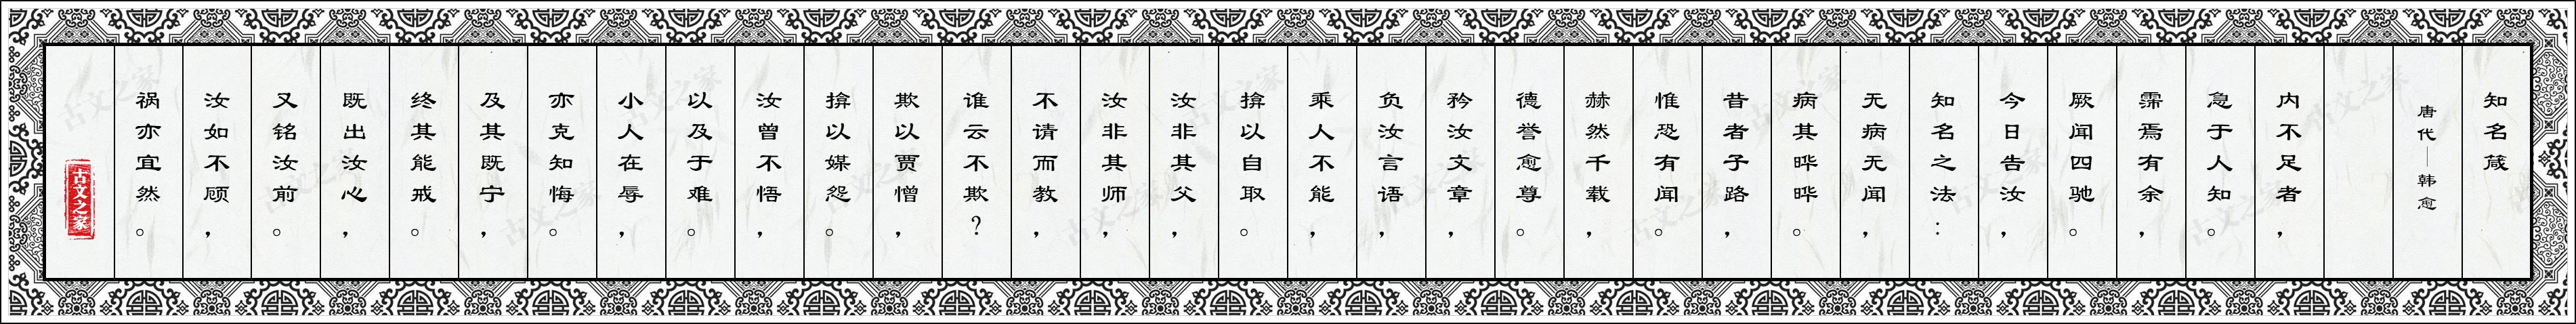 知名箴
唐代—韩愈
内不足者，
急于人知。
霈焉有余，
厥闻四驰。
今日告汝，
知名之法：
无病无闻，
病其晔晔。
昔者子路，
惟恐有闻。
赫然千载，
德誉愈尊。
矜汝文章，
负汝言语，
乘人不能，
揜以自取。
汝非其父，
汝非其师，
不请而教，
谁云不欺？
欺以贾憎，
揜以媒怨。
汝曾不悟，
以及于难。
小人在辱，
亦克知悔。
及其既宁，
终其能戒。
既出汝心，
又铭汝前。
汝如不顾，
祸亦宜然。
古文之家